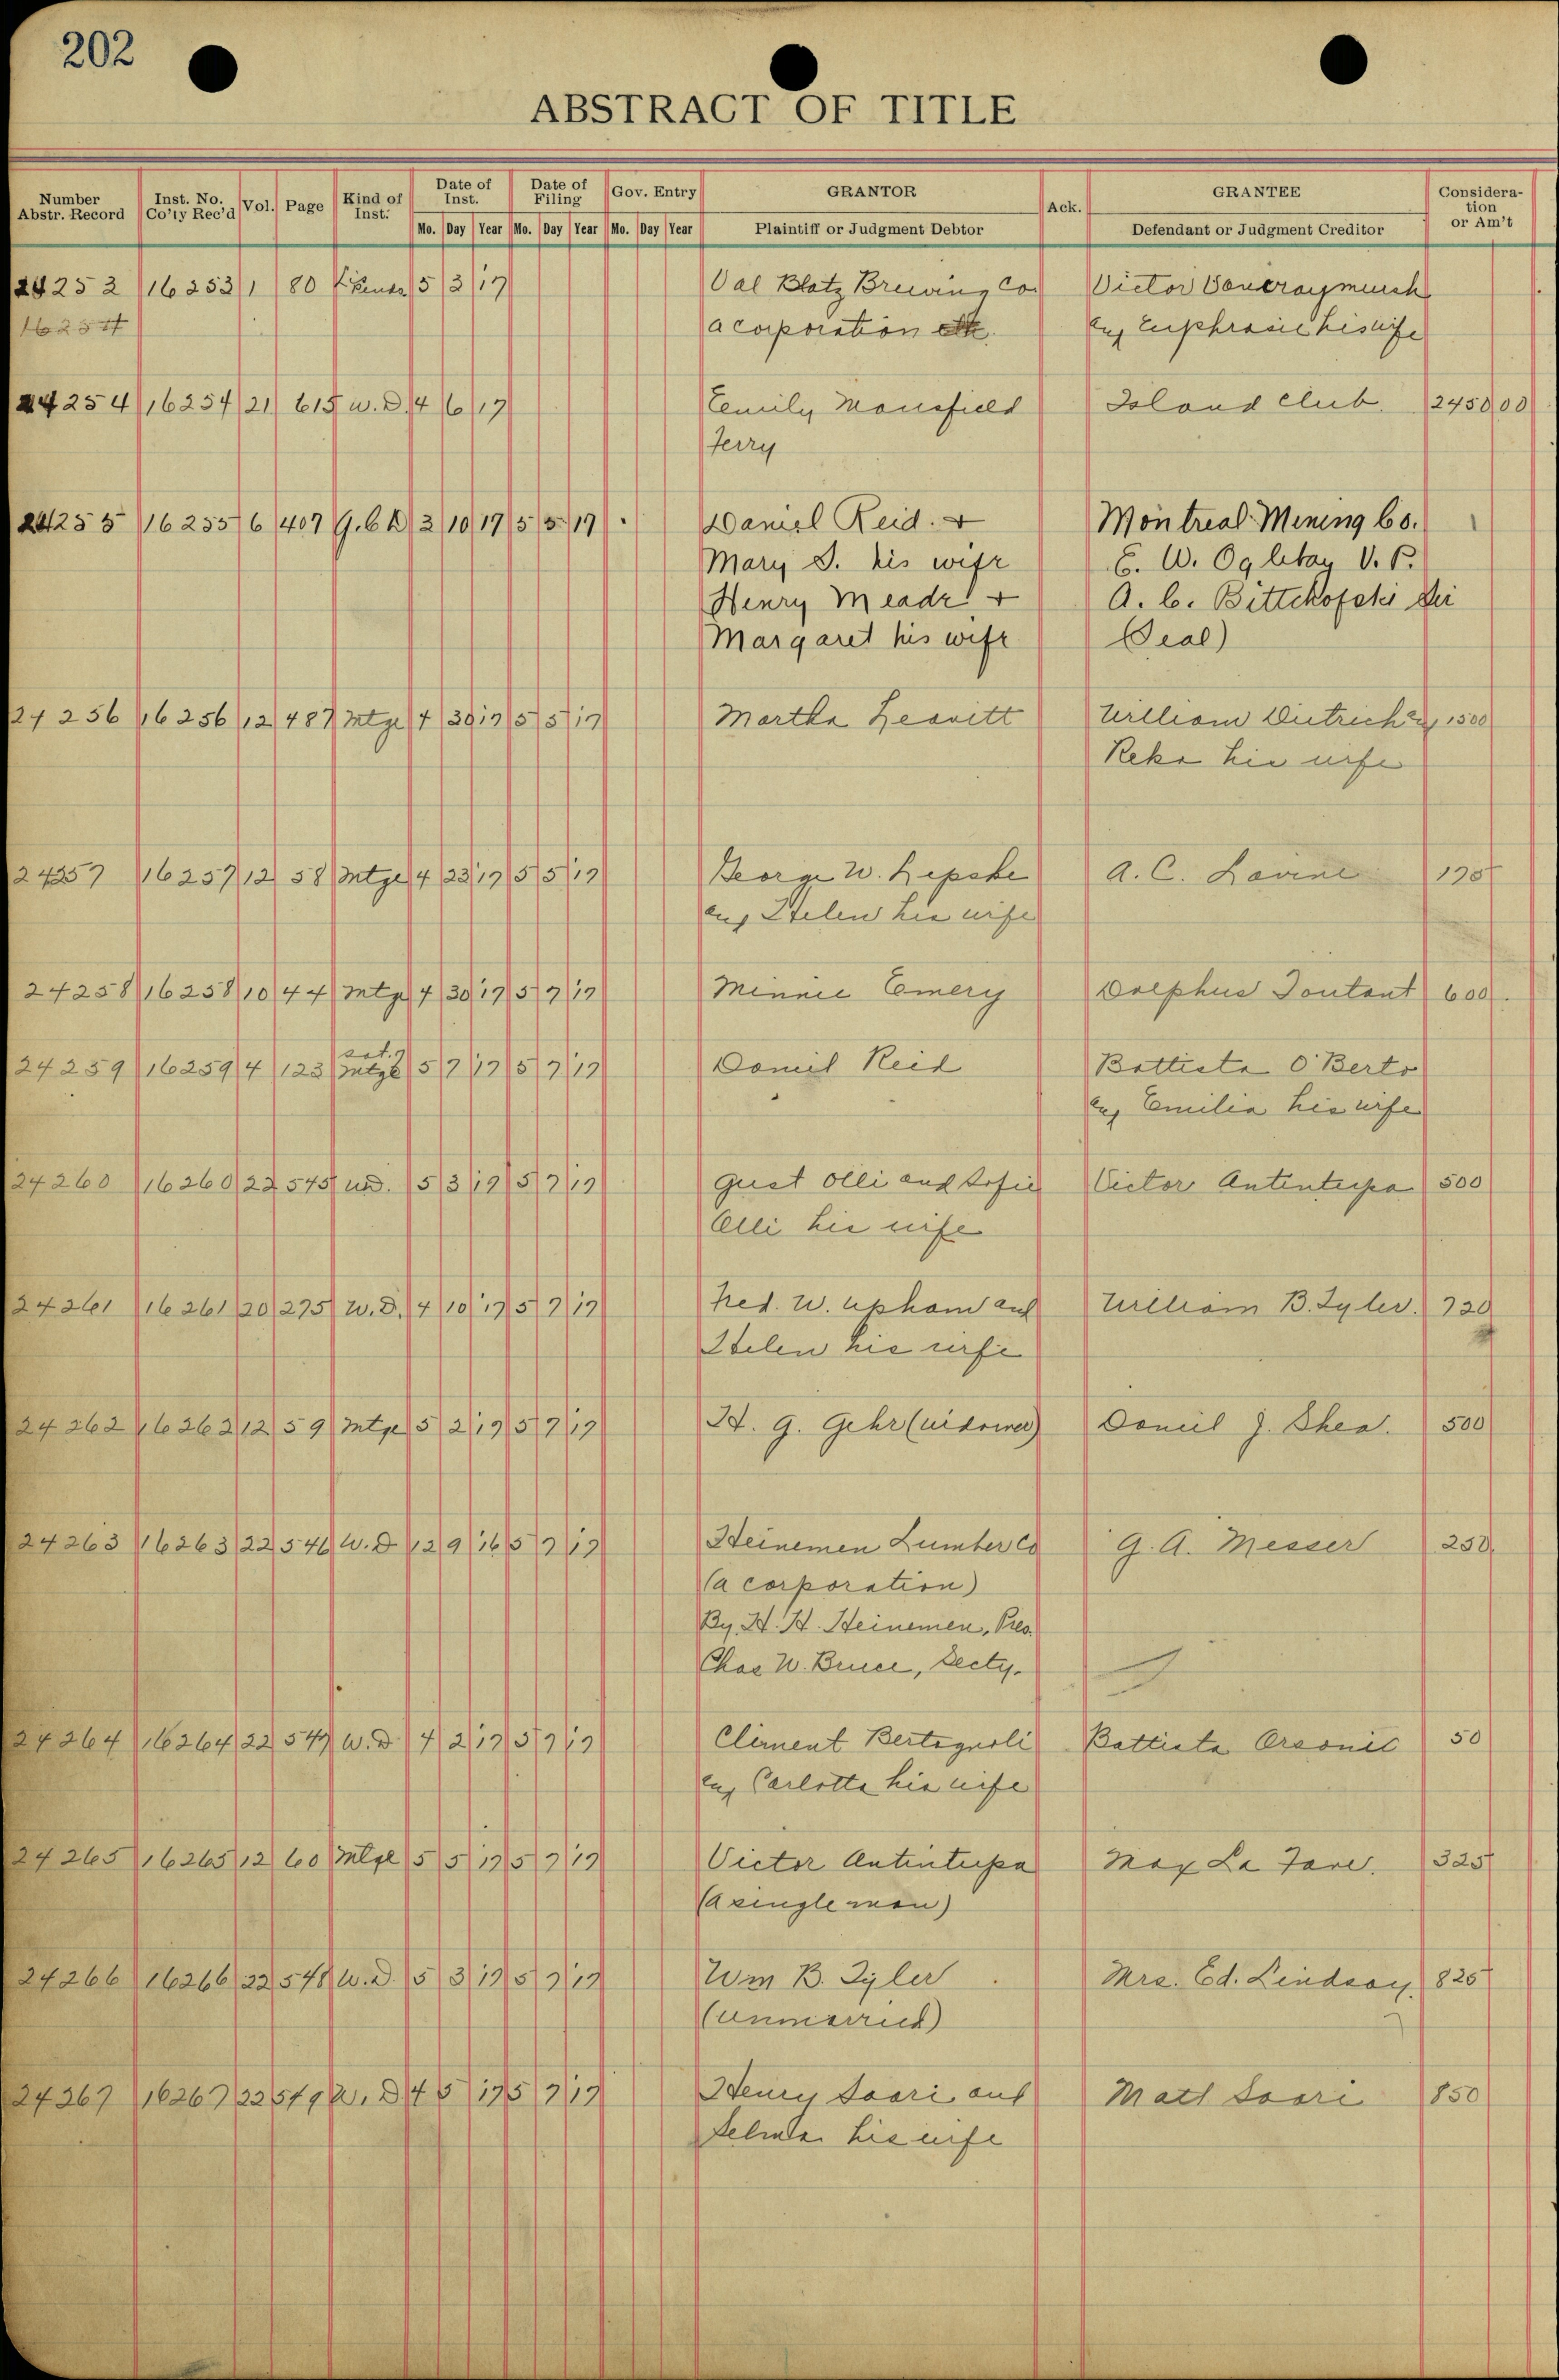 202
ABSTRACT OF TITLE
Number Abstr. Record Inst. No. Co'ty Rec'd Vol. Page Kind of Inst. Date of Inst. Date of Filing Gov. Entry GRANTOR Ack. GRANTEE Consideration or Am't
Mo. Day Year Mo. Day Year Mo. Day Year Plaintiff or Judgment Debtor Defendant or Judgment Creditor
24253 16253 1 80 5 3 17 Val Blatz Brewing Co. Victor
16254 a corporation and Euphrasie his wife
24254 16254 21 615 W.D. 4 6 17 Emily Mansfield Island Club. 2450 00
Terry
24255 16255 6 407 3 10 17 5 5 17 Daniel Reid. + Montreal Mining Co. 1
Mary S. his wife E. W. Oglebay V. P.
Henry Meade + A. C.
Margaret his wife (Seal)
24256 16256 12 487 Mtge 4 30 17 5 5 17 Martha Leavitt William Dietrich and 1500
Reka his wife
24257 16257 12 58 Mtge 4 23 17 5 5 17 George W. Lepske A. C. Lavine 175
and Helen his wife
24258 16258 10 44 Mtge 4 30 17 5 7 17 Minnie Emery Dolphus Toutant 600
24259 16259 4 123 Sat. Mtge 5 7 17 5 7 17 Daniel Reid Battista O'Berto
and Emilia his wife
24260 16260 22 545 W.D. 5 3 17 5 7 17 Gust Olli and Sofie Victor Antintupa 500
Olli his wife
24261 16261 20 275 W.D. 4 10 17 5 7 17 Fred. W. Upham and William B. Tyler. 720
Helen his wife
24262 16262 12 59 Mtge 5 2 17 5 7 17 H. G. Gehr (widower) Daniel J. Shea. 500
24263 16263 22 546 W.D 12 9 16 5 7 17 Heinemen Lumber Co G. A. Messer 250
(a corporation)
By. H. H. Heinemen, Pres.
Chas W. Bruce, Secty.
24264 16264 22 547 W.D. 4 2 17 5 7 17 Climent Bertagnoli Battista 50
and Carlotta his wife
24265 16265 12 60 Mtge 5 5 17 5 7 17 Victor Antintupa Max La Fave. 325
(a single man)
24266 16266 22 548 W.D. 5 3 17 5 7 17 Wm B. Tyler Mrs. Ed. Lindsay. 825
(unmarried)
24267 16267 22 549 W.D 4 5 17 5 7 17 Henry Saari and Matt Saari 850
Selma his wife